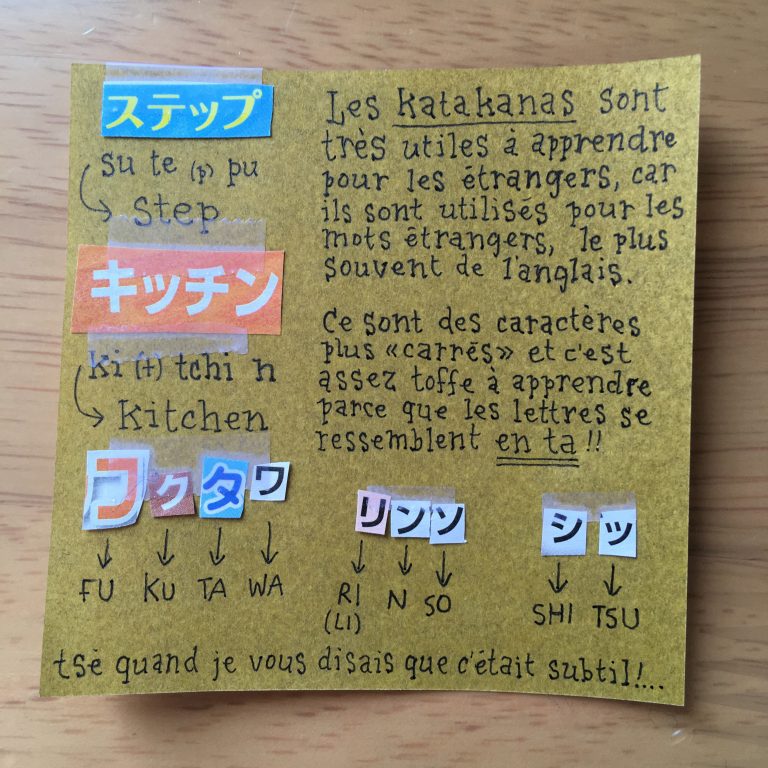 ステップ
su te (p) pu
step
キッチン
ki (t) tchi n
kitchen
Les katakanas sont
très utiles à apprendre
pour les étrangers, car
ils sont utilisés pour les
mots étrangers, le plus
souvent de l'anglais.
Ce sont des caractères
plus «carrés» et c'est
assez toffe à apprendre
parce que les lettres se
ressemblent en ta !!
フ ク タ ワ
FU KU TA WA
リ ン ソ
RI N SO
(LI)
シ ッ
SHI TSU
tsé quand je vous disais que c'était subtil!....